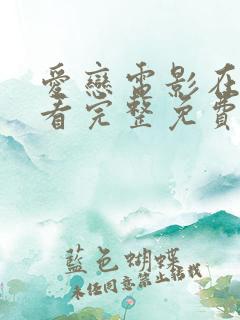 愛戀電影在
看完整免費
藍色蝴蝶
未經同意禁止轉載